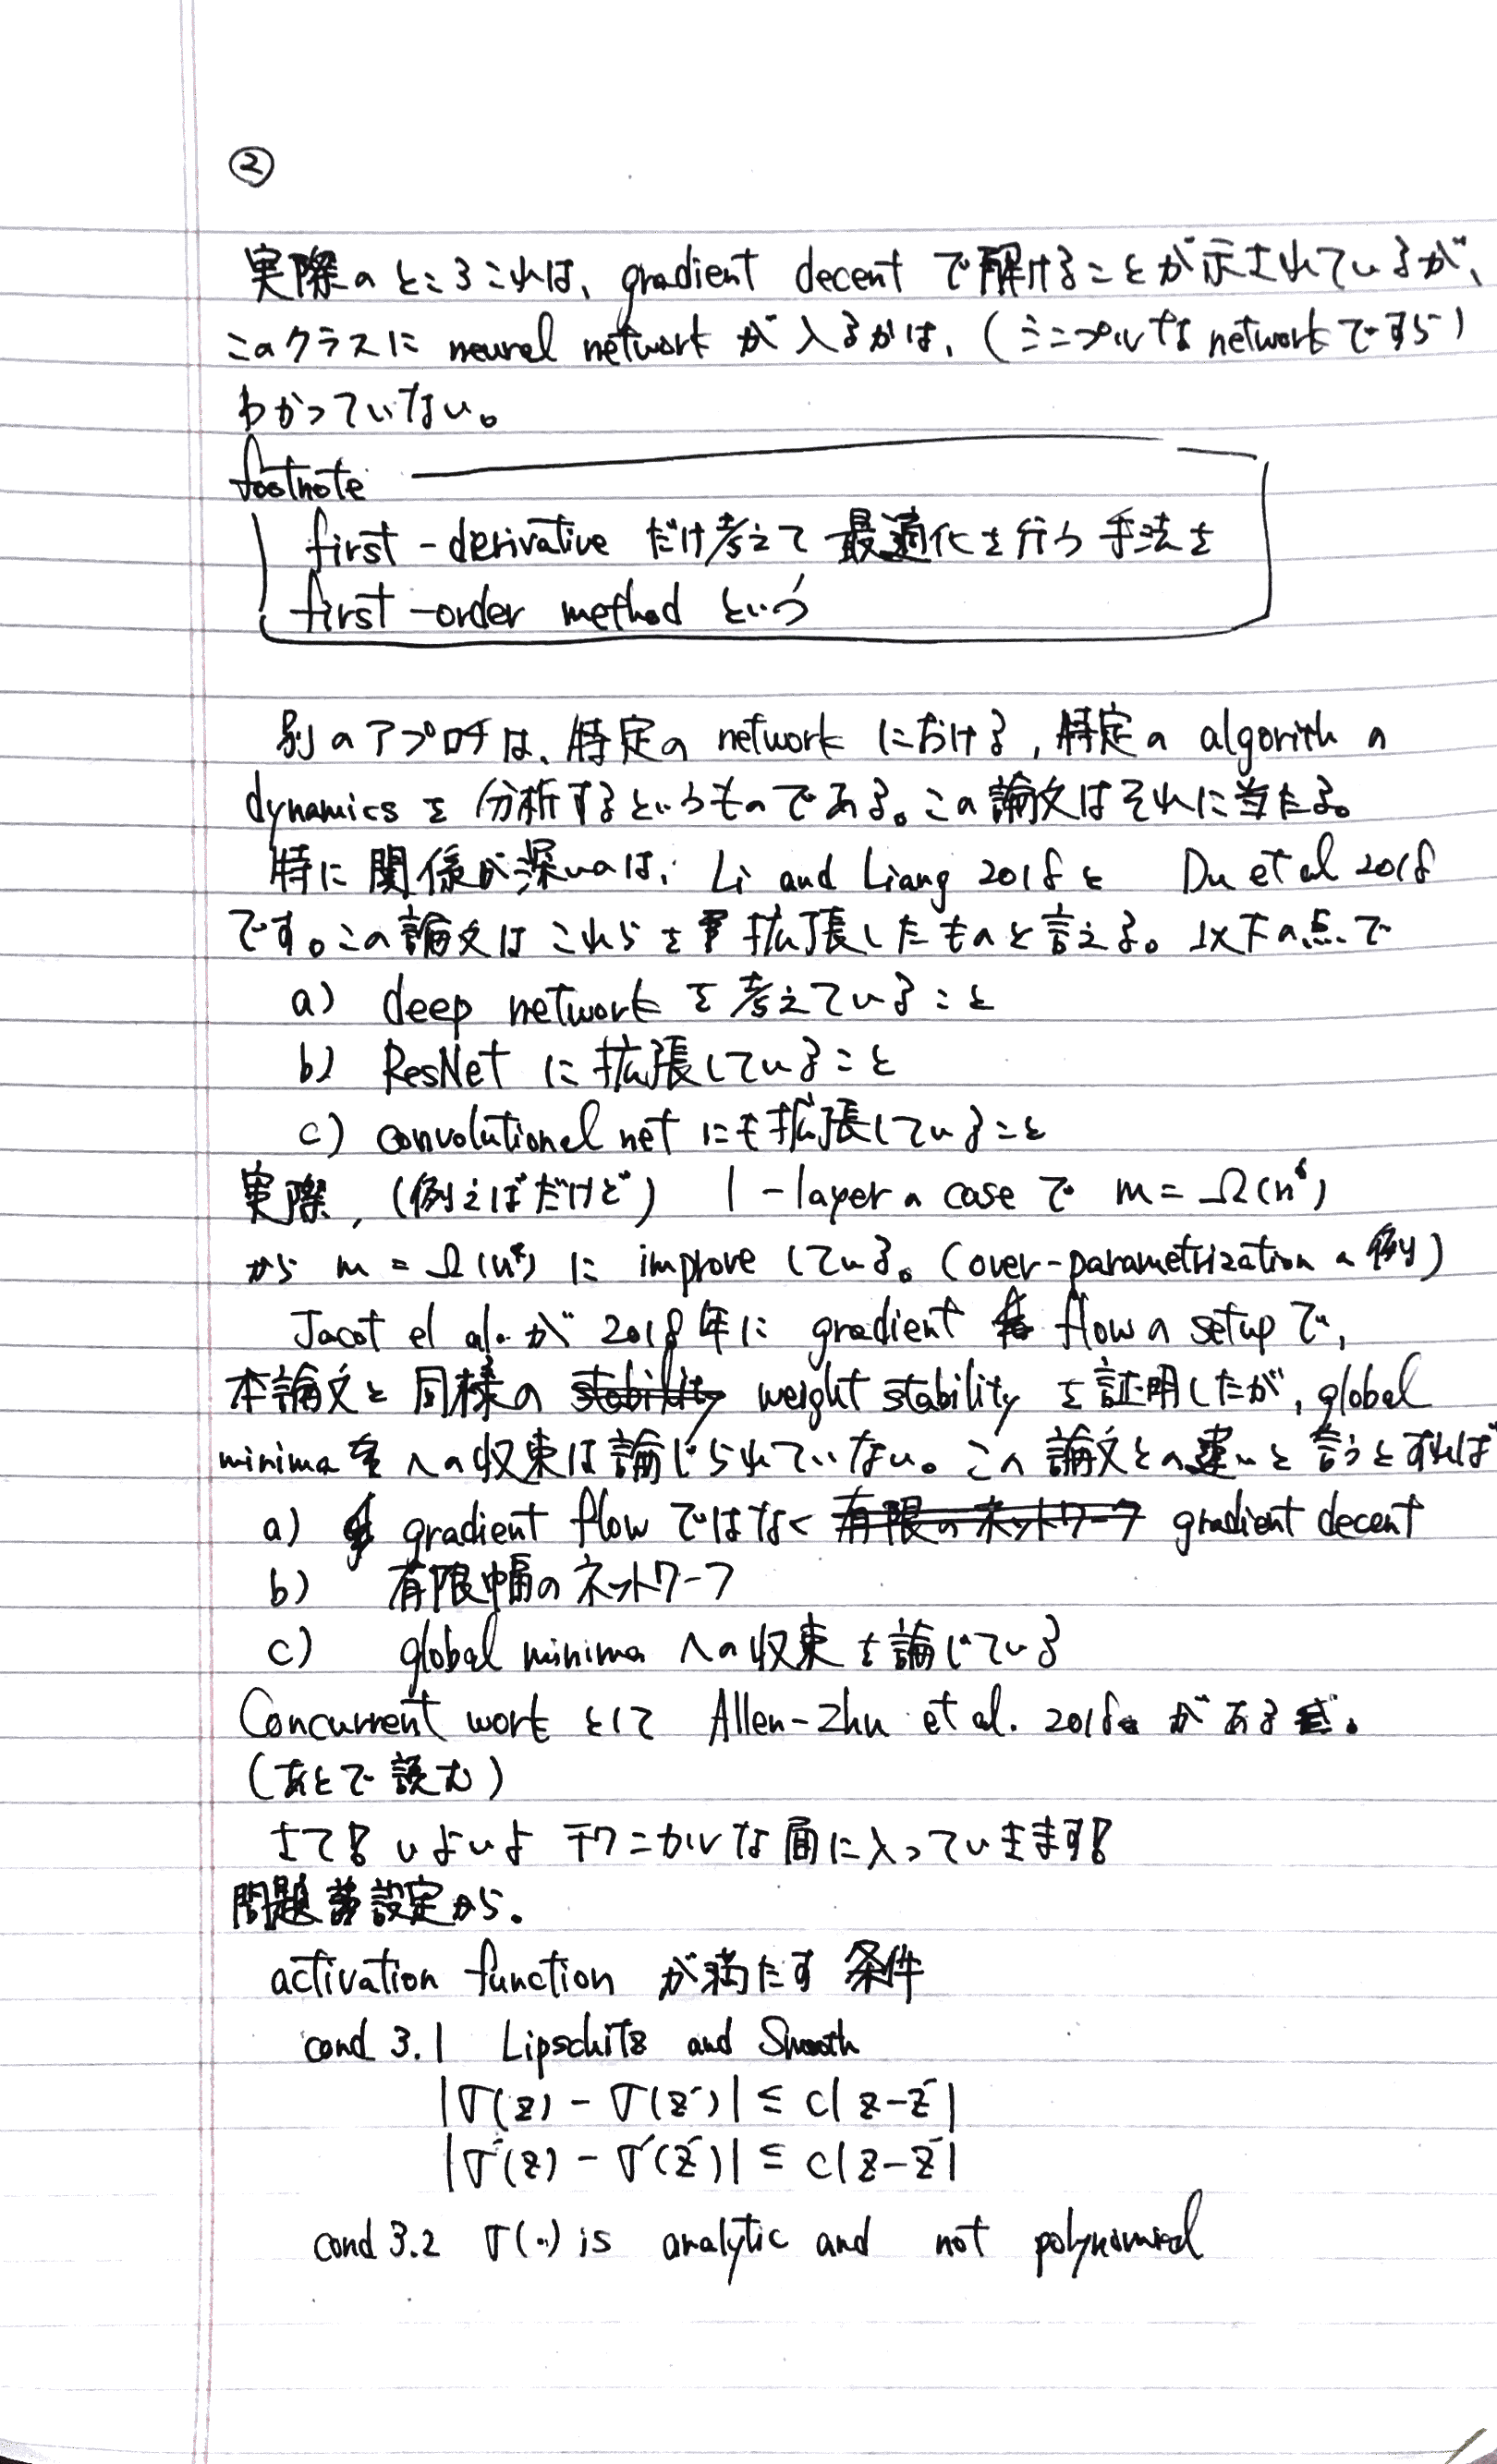 ②
実際のところこれは、gradient decent で解けることが示されているが、
このクラスに neural network が入るかは、(シンプルな networkですら)
わかっていない。
footnote
first-derivative だけ考えて最適化を行う手法を
first-order method という
別のアプロチは、特定の network における, 特定の algorith の
dynamics を分析するというものである。この論文はそれに当たる。
特に関係が深いのは、Li and Liang 2018 と Du et al 2018
です。この論文はこれらを拡張したものと言える。以下の点で
a) deep network を考えていること
b) ResNet に拡張していること
c) convolutional net にも拡張していること
実際, (例えばだけど) 1-layer の case で m = Ω(n⁶)
から m = Ω(n⁴) に improve している。(over-parametrization の例)
Jacot el al. が 2018年に gradient flow の setup で,
本論文と同様の stability weight stability を証明したが, global
minima への収束は論じられていない。この論文との違いと言うとすれば
a) gradient flow ではなく 有限のネットワーク gradient decent
b) 有限幅のネットワーク
c) global minima への収束を論じている
Concurrent work として Allen-Zhu et al. 2018a がある。
(あとで読む)
さて! いよいよ テクニカルな面に入っていきます!
問題設定から.
activation function が満たす条件
cond 3.1 Lipschitz and Smooth
|σ(z) - σ(z')| ≤ c|z-z'|
|σ'(z) - σ'(z')| ≤ c|z-z'|
cond 3.2 σ(·) is analytic and not polynomial